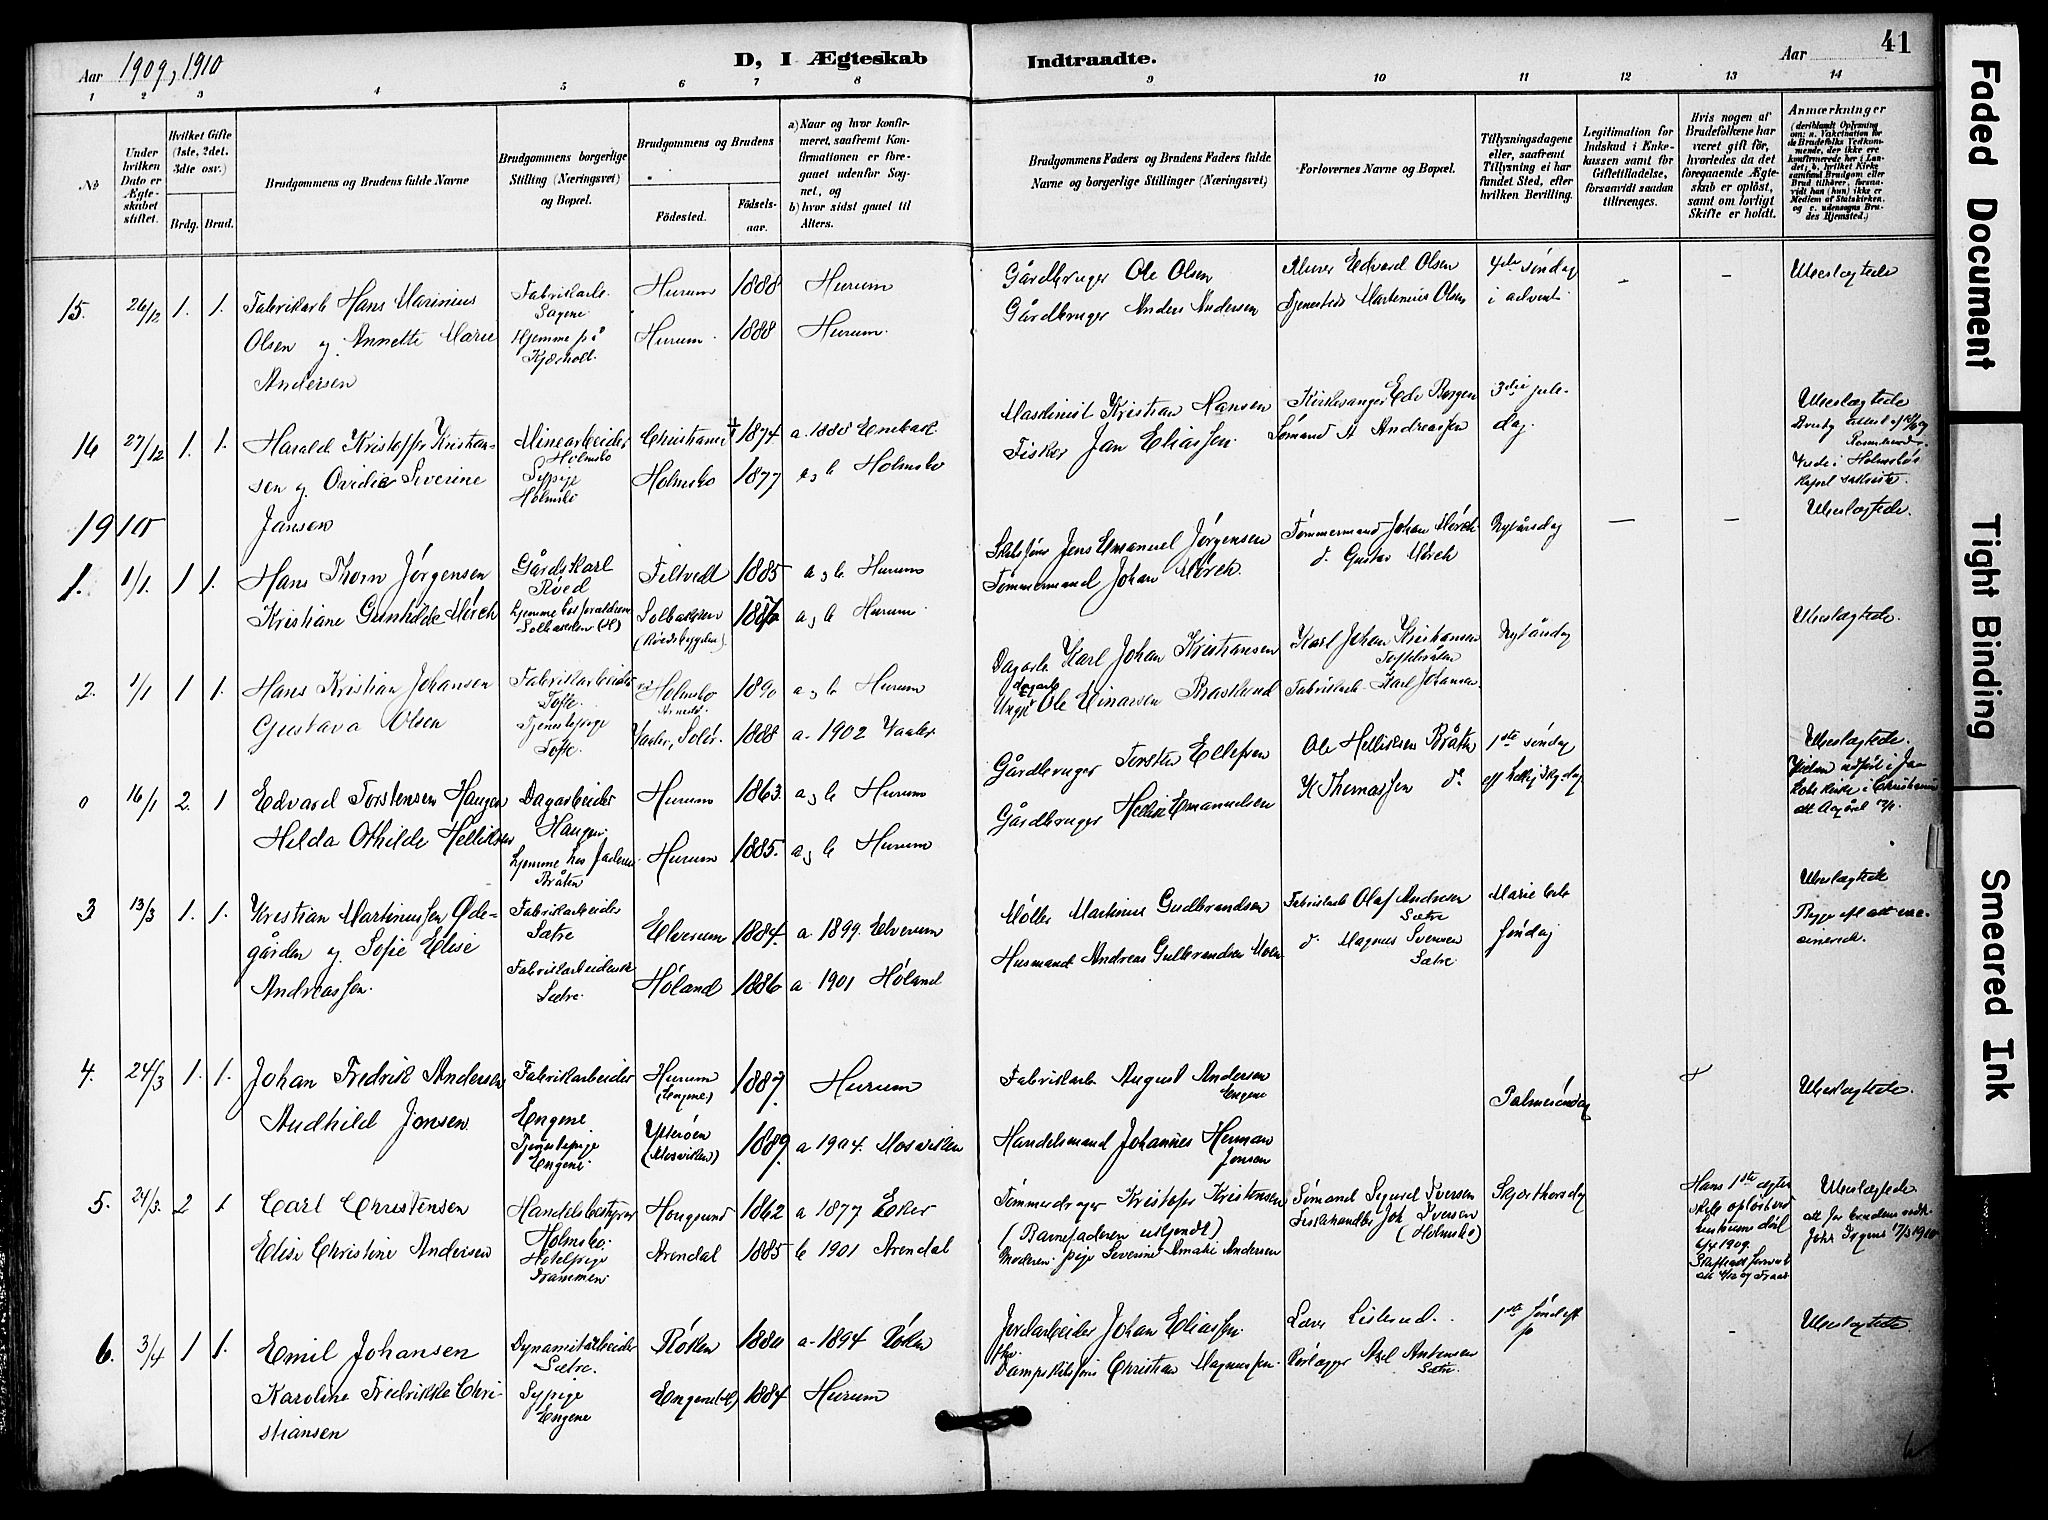 Aar 1909, 1910
D, I Ægteskab
Indtraadte.
Aar
41
1 2 3 4 5 6 7 8 9 10 11 12 13 14
No
Under hvilken Dato er Ægteskabet stiftet.
Hvilket Gifte (1ste, 2det, 3dte osv.)
Brdg. Brud.
Brudgommens og Brudens fulde Navne
Brudgommens borgerlige Stilling (Næringsvei) og Bopæl.
Brudgommens og Brudens
Födested.
Födselsaar.
a) Naar og hvor konfirmeret, saafremt Konfirmationen er foregaaet udenfor Sognet, og
b) hvor sidst gaaet til Alters.
Brudgommens Faders og Brudens Faders fulde Navne og borgerlige Stillinger (Næringsvei)
Forlovernes Navne og Bopæl.
Tillysningsdagene eller, saafremt Tillysning ei har fundet Sted, efter hvilken Bevilling.
Legitimation for Indskud i Enkekassen samt for Giftetilladelse, forsaavidt saadan tiltrænges.
Hvis nogen af Brudefolkene har været gift för, hvorledes da det foregaaende Ægteskab er oplöst, samt om lovligt Skifte er holdt.
Anmærkninger
15. 26/12 1. 1. Fabrikarb Hans Marinius
Olsen og Annette Marie
Andersen
Fabrikarb.
Sagene
Hjemme på
Hurum 1888 Hurum
Hurum. 1888 Hurum.
Gårdbruger Ole Olsen
Gårdbruger Anders Andersen
Murer Edvard Olsen
Martinius Olsen
4de søndag
i advent.
Ubeslægtede
16 27/12 1. 1. Harald Kristoffer Kristian-
sen og Ovidia Severine
Jansen
Minearbeider
Holmsbo
Sypige
Holmsbo
Christiania 1874
Holmsbo 1877 a, b Holmsbo
Maskinist Kristian Hansen
Fisker Jan Eliassen.
Kirkesanger Edv Borgen
Sømand A Andreassen
3die jule-
dag.
Ubeslægtede
1910
1. 1/1. 1 1. Hans Thorn Jørgensen
Kristiane Gunhilde Mørch
Gårdskarl
Røed
Solbakken (H)
Filtvedt 1885 a, b. Hurum
Solbakken
(Rødsbygden)
a, b Hurum.
Jens Emanuel Jørgensen
Tømmermand Johan Mørch.
Tømmermand Johan Mørch
d. Gustav Mørch
Nytårsdag
Ubeslægtede.
2. 1/1 1 1. Hans Kristian Johansen
Gustava Olsen
Fabrikarbeider
Tofte.
Tjenestepige
Tofte.
Holmsbo 1890 a, b Hurum
Vaaler, Solør. 1888 a. 1902 Vaaler
Dagarb Karl Johan Kristiansen
Ole Einarsen
Karl Johan Kristiansen
Fabrikarb. Karl Johansen.
Nytårsdag
Ubeslægtede.
0 16/1 2. 1 Edvard Torstensen Haugen
Helda Othilde Helliksen
Dagarbeider
Haugen.
Hjemme hos faderen
Bråten
Hurum 1863. a, b Hurum
Hurum 1885. a, b Hurum
Gårdbruger Torsten Ellefsen
Gårdbruger Hellik Emanuelsen
Ole Helliksen Bråten
K Thomassen d.
1ste søndag
Ubeslægtede.
3 13/3 1. 1. Kristian Martinussen Øde-
gården og Sofie Elise
Andreassen.
Fabrikarbeider
Sætre
Fabrikarbeiderske
Sætre.
Elverum 1884. a. 1899. Elverum
Høland 1886 a 1901 Høland
Møller Martinus Gudbrandsen
Husmand Andreas Gulbrandsen Moen
Fabrikarb Olaf Andresen
Sætre
d. Magnus Svensen
Sætre.
Marie
søndag
Ubeslægtede
4. 24/3 1. 1. Johan Fredrik Andersen
Audhild Jonsen
Fabrikarbeider
Engene.
Tjenestepige
Engene.
Hurum
(Engene) 1887. Hurum
Ytterøen
(Mosviken) 1889. a 1904. Mosviken
Fabrikarb August Andersen
Engene
Handelsmand Johannes Herman
Jonsen
Palmesøndag
Ubeslægtede.
5. 24/3. 2 1. Carl Christensen
Elise Christine Andersen
Handelsbestyrer
Holmsbo.
Hotelpige
Drammen.
Hougsund 1862 a 1877 Eker
Arendal 1885 b 1901 Arendal
Tømmerdrager Kristofer Kristensen
(Barnefaderen uskjendt)
Moderen: pige Severine Amalie Andersen
Sømand Sigurd Iversen
Fiskehandler Joh Iversen
(Holmsbo)
Skjærthorsdag
Hans 1ste ægte-
skab opløst ved
hustruens død
6/4 1909.
Ubeslægtede
6. 3/4 1 1. Emil Johansen
Karoline Fredrikke Chri-
stiansen
Dynamitarbeider
Sætre.
Sypige
Engene
Røken 1880 a. 1894 Røken
Engene (H) 1884 Hurum
Jordarbeider Johan Eliassen.
Christian Magnussen.
Lars Lislerud.
Rørlægger Axel Antonsen
Sætre.
1ste
Ubeslægtede.
Faded Document
Tight Binding
Smeared Ink